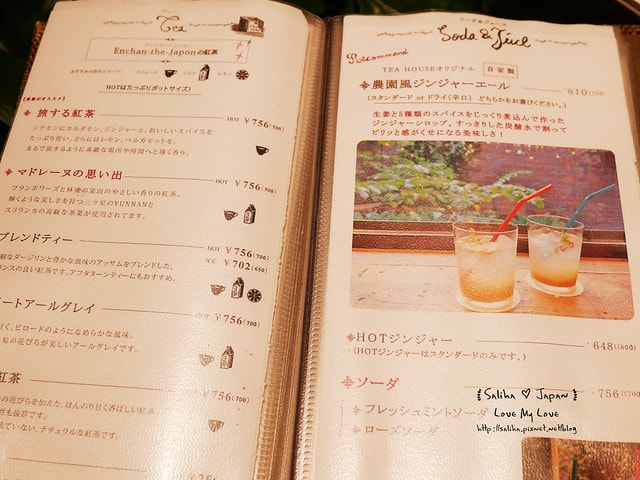 Tea
Enchan-the-Japonの紅茶
おすすめの飲み方マーク:
ストレート
ミルク
レモン
HOTはたっぷりポットサイズ!
旅する紅茶
HOT ¥756(700)
シナモンにカルダモン、ジンジャーと、おいしいスパイスを
たっぷり使い、さらにはレモン、ベルガモットを。
まるで旅するように素敵な場所や時間へと導く香り。
マドレーヌの思い出
HOT ¥756(700)
フランボワーズと林檎の果肉のやさしい香りの紅茶。
輝くような美しさを持つ三ツ星のYUNNANと
スリランカの高級な茶葉が使用されてます。
ブレンドティー
HOT ¥756(700)
ICE ¥702(650)
細なダージリンと豊かな風味のアッサムをブレンドした、
ランスの良い紅茶です。アフタヌーンティーにもおすすめ。
ートアールグレイ
HOT ¥756(700)
く、ビロードのようになめらかな風味。
の花びらが美しいアールグレイです。
紅茶
¥756(700)
の花びらを加えた、ほんのり甘く香ばしい紅茶
性も抜群です。
えていない、ナチュラルな紅茶です。
ソーダ&ジュース
Soda & Juice
Recommend
TEA HOUSEオリジナル 自家製
農園風ジンジャーエール
810
(スタンダード or ドライ(辛口) どちらかをお選びください。)
生姜と5種類のスパイスをじっくり煮込んで作った
ジンジャーシロップ。すっきりした炭酸水で割って
ピリッと感がくせになる美味しさ!
HOTジンジャー
648(600)
(HOTジンジャーはスタンダードのみです。)
ソーダ
756(700
フレッシュミントソーダ
ローズソーダ
Saliha ♡ Japan
Love My Love
http://saliha.pixnet.net/blog